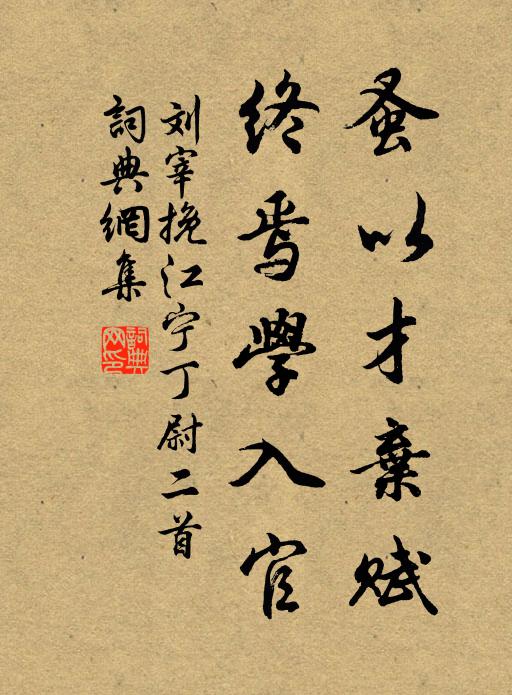 蚤以才棄賦
終焉學入官
刘宰挽江宁丁尉二首
詞典網集
詞典網印